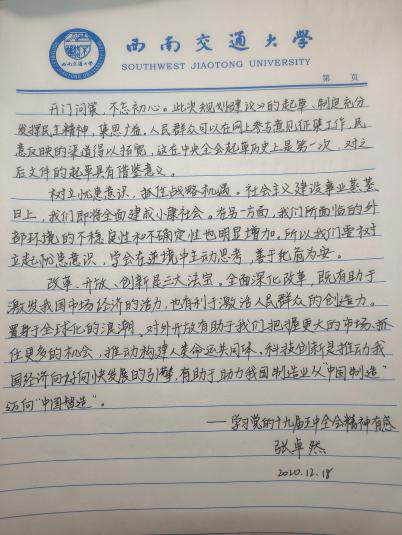 西南交通大学
SOUTHWEST JIAOTONG UNIVERSITY
第 页
开门问策，不忘初心。此次规划《建议》的起草、制定充分
发挥民主精神，集思广益，人民群众可以在网上参与意见征集工作，民
意反映的渠道得以拓宽，这在中央全会起草历史上是第一次，对之
后文件的起草具有借鉴意义。
树立忧患意识，抓住战略机遇。社会主义建设事业蒸蒸
日上，我们即将全面建成小康社会。在另一方面，我们所面临的外
部环境的不稳定性和不确定性也明显增加。所以我们要树
立起忧患意识，学会在逆境中主动思考，善于化危为安。
改革、开放、创新是三大法宝。全面深化改革，既有助于
激发我国市场经济的活力，也有利于激活人民群众的创造力。
置身于全球化的浪潮，对外开放有助于我们把握更大的市场、抓
住更多的机会，推动构建人类命运共同体。科技创新是推动我
国经济向好向快发展的引擎，有助于助力我国制造业从“中国制造”
迈向“中国智造”。
——学习党的十九届五中全会精神有感
张卓然
2020.12.18